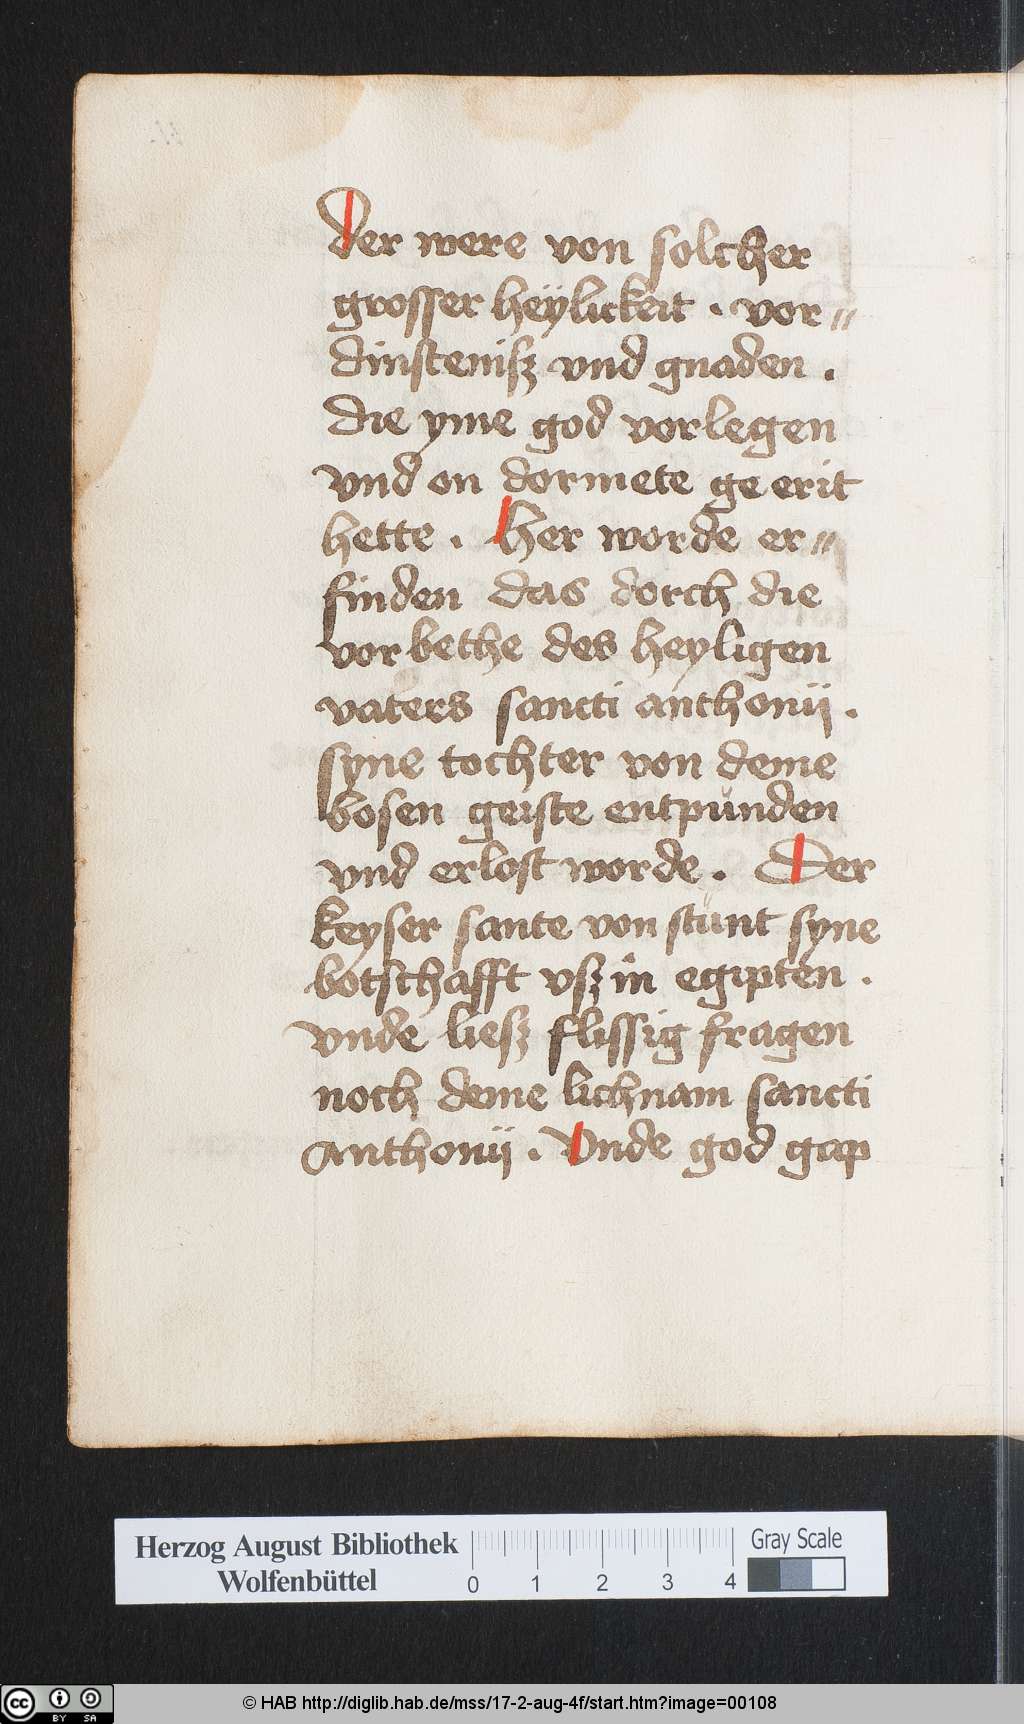 der were von solcher
grosser heÿlickeit . vor=
dinstenisz vnd gnaden .
die yme god vorlegen
vnd on dormete ge erit
hette . Her worde er=
finden das dorch die
vor bethe des heyligen
vaters sancti anthonij .
syne tochter von deme
bosen geiste entpunden
vnd erlost worde . Der
keyser sante von stunt syne
botschafft vsz in egipten .
vnde liesz flissig fragen
noch deme lichnam sancti
anthonij . Vnde god gap
Herzog August Bibliothek
Wolfenbüttel
0 1 2 3 4
Gray Scale
cc BY SA
© HAB http://diglib.hab.de/mss/17-2-aug-4f/start.htm?image=00108